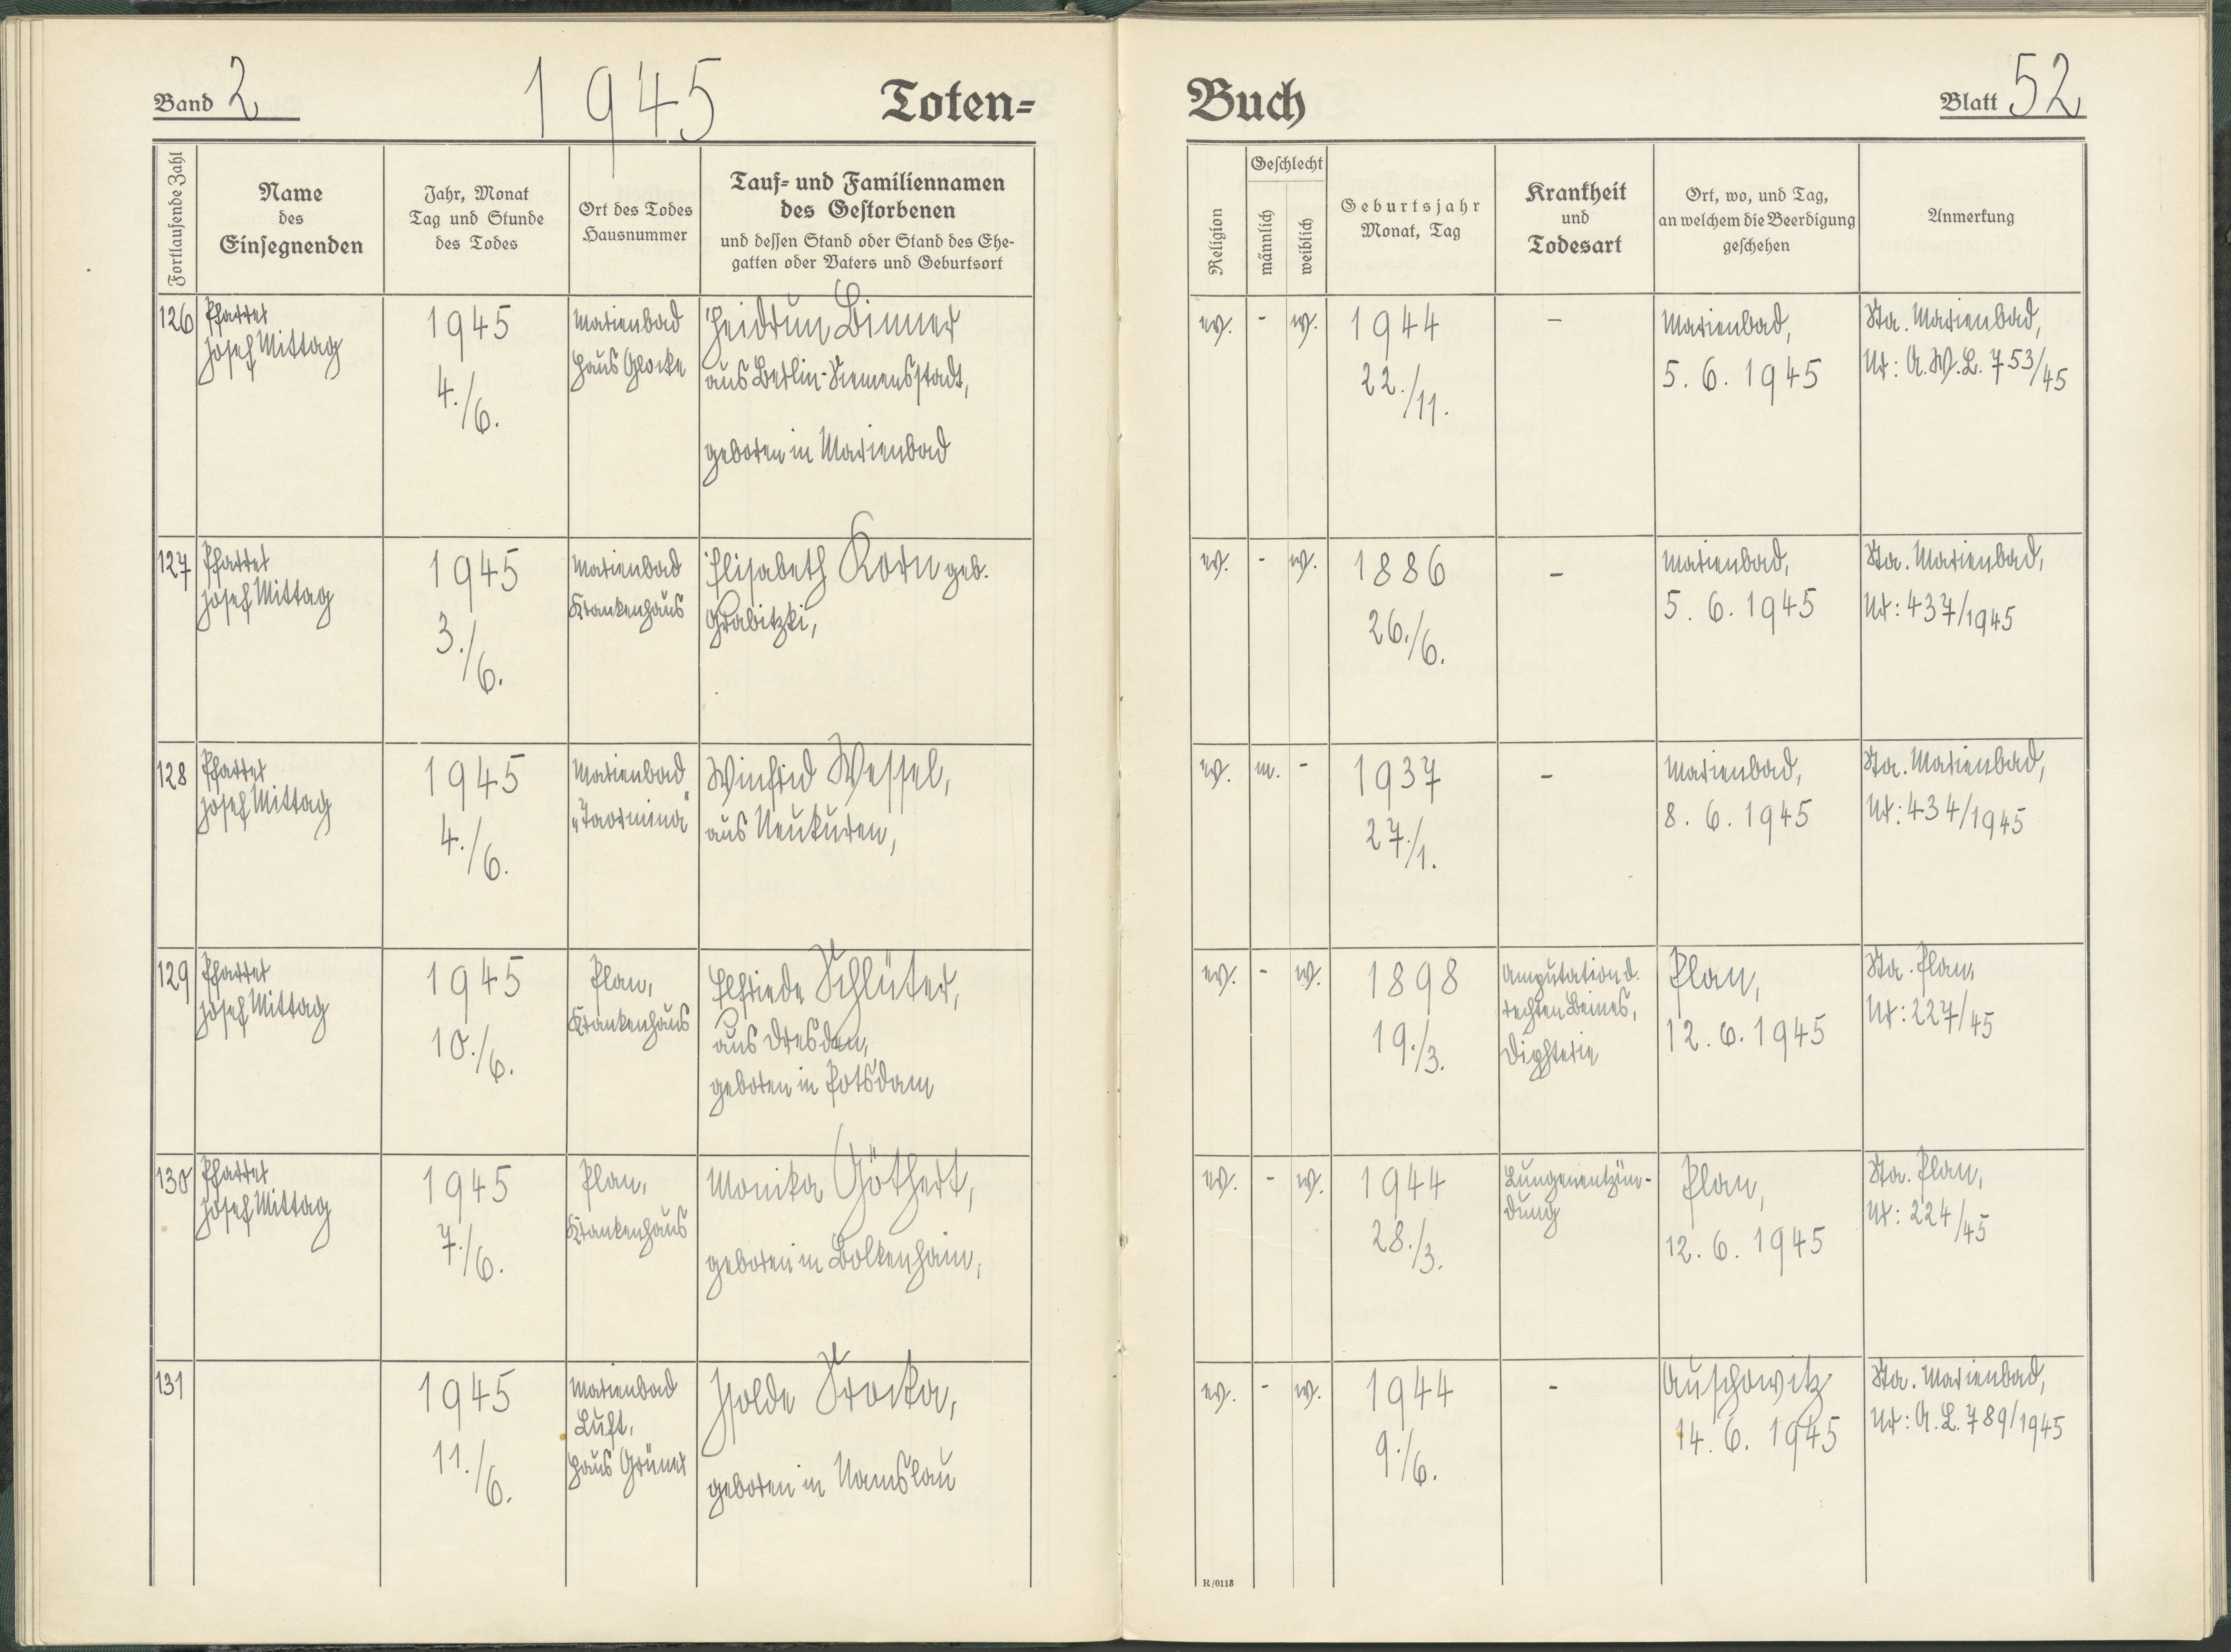 Band 2
1945
Toten=
Buch
Blatt 52
Fortlaufende Zahl
Name
des
Einsegnenden
Jahr, Monat
Tag und Stunde
des Todes
Ort des Todes
Hausnummer
Tauf= und Familiennamen
des Gestorbenen
und dessen Stand oder Stand des Ehe-
gatten oder Vaters und Geburtsort
Religion
Geschlecht
männlich
weiblich
Geburtsjahr
Monat, Tag
Krankheit
und
Todesart
Ort, wo, und Tag,
an welchem die Beerdigung
geschehen
Anmerkung
126
Pfarrer
Josef Mittag
1945
4./6.
Marienbad
Haus Glocke
Heidrun Binner
aus Berlin-Siemensstadt,
geboren in Marienbad
ev. - w.
1944
22./11.
-
Marienbad,
5. 6. 1945
Sta. Marienbad,
Nr: A.W.L. 753/45
127
Pfarrer
Josef Mittag
1945
3./6.
Marienbad
Krankenhaus
Elisabeth Korn geb.
Grabitzki,
ev. - w.
1886
26./6.
-
Marienbad,
5. 6. 1945
Sta. Marienbad,
Nr: 437/1945
128
Pfarrer
Josef Mittag
1945
4./6.
Marienbad
„Taormina“
Winfrid Wessel,
aus Neukuren,
ev. m. -
1937
27./1.
-
Marienbad,
8. 6. 1945
Sta. Marienbad,
Nr: 434/1945
129
Pfarrer
Josef Mittag
1945
10./6.
Plan,
Krankenhaus
Elfriede Schlüter,
aus Dresden,
geboren in Potsdam
ev. - w.
1898
19./3.
Amputation d.
rechten Beines,
Diphterie
Plan,
12. 6. 1945
Sta. Plan,
Nr: 227/45
130
Pfarrer
Josef Mittag
1945
7./6.
Plan,
Krankenhaus
Monika Göthert,
geboren in Bolkenhain,
ev. - w.
1944
28./3.
Lungenentzün-
dung
Plan,
12. 6. 1945
Sta. Plan,
Nr: 224/45
131
1945
11./6.
Marienbad
Luft,
Haus Grüner
Isolde Srocka,
geboren in Namslau
ev. - w.
1944
9./6.
-
Auschowitz
14. 6. 1945
Sta. Marienbad,
Nr: A.L. 789/1945
R/0118